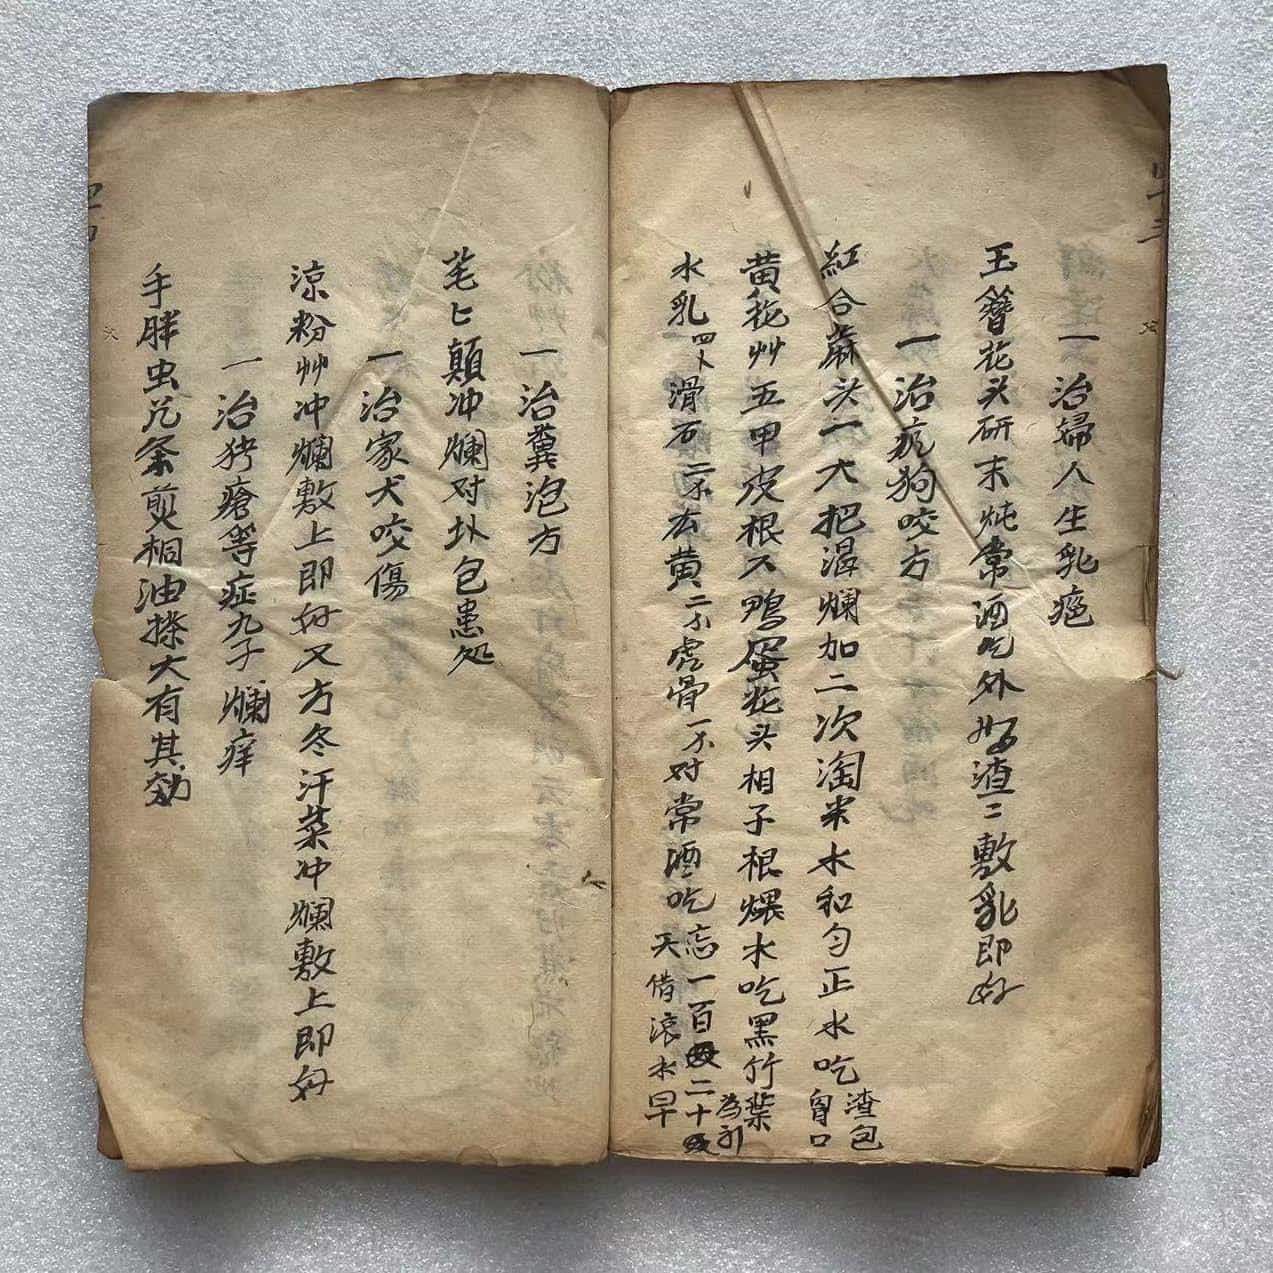 四十三
一治婦人生乳痣
玉簪花头研末炖常酒吃外好渣二敷乳即好
一治疯狗咬方
紅合蔴头一大把温爛加二次淘米水和匀正水吃渣包胷口
黄花艸五甲皮根不鴨蛋花头相子根煨水吃黑竹葉為引
水乳四卜滑石二不玄黄二不虎骨一不对常酒吃忘一百二十
天借滚水早
一治糞泡方
芼匕顛冲爛对圤包患处
一治家犬咬傷
涼粉艸冲爛敷上即好又方冬汗菜冲爛敷上即好
一治㾿瘡等症九子爛痒
手胖虫 条煎桐油搽大有其効